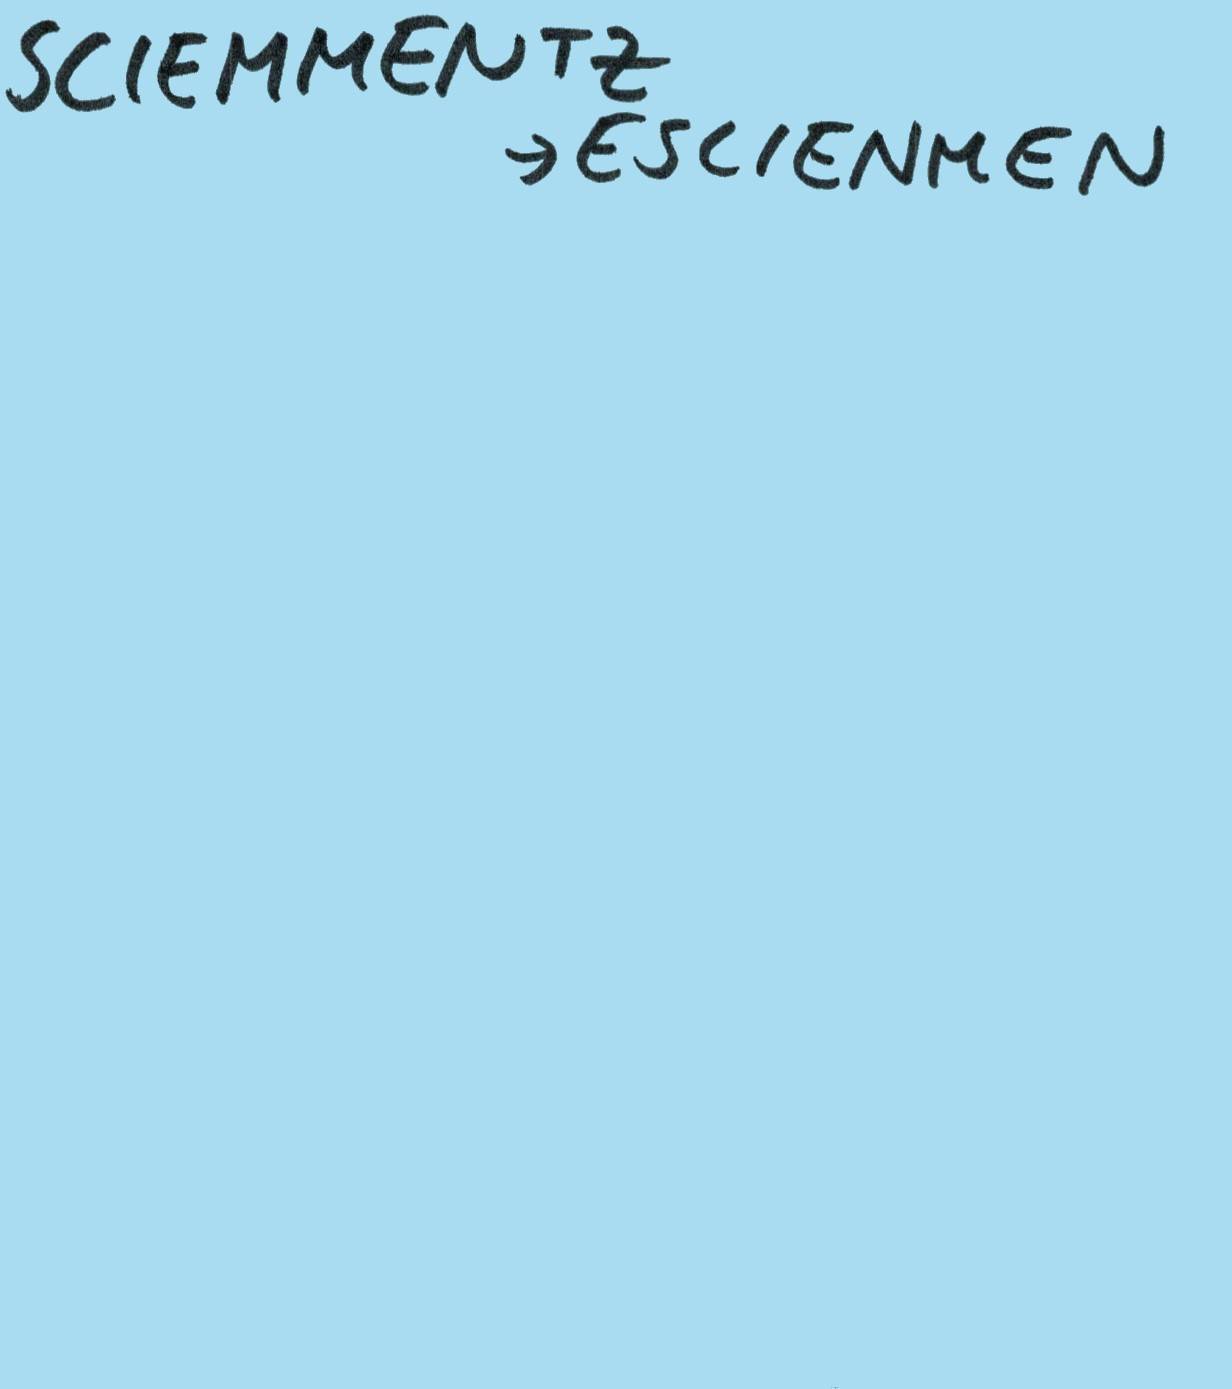 SCIEMMENTZ
→ESCIENMEN